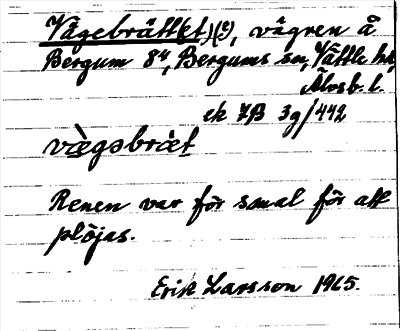 Vägebrätt(et)(e), vägren å
Bergum 8⁴, Bergums sn, Vättle hd,
Älvsb. l.
ek 7B 3g/442
vägəbrät
Renen var för smal för att
plöjas.
Erik Larsson 1965.